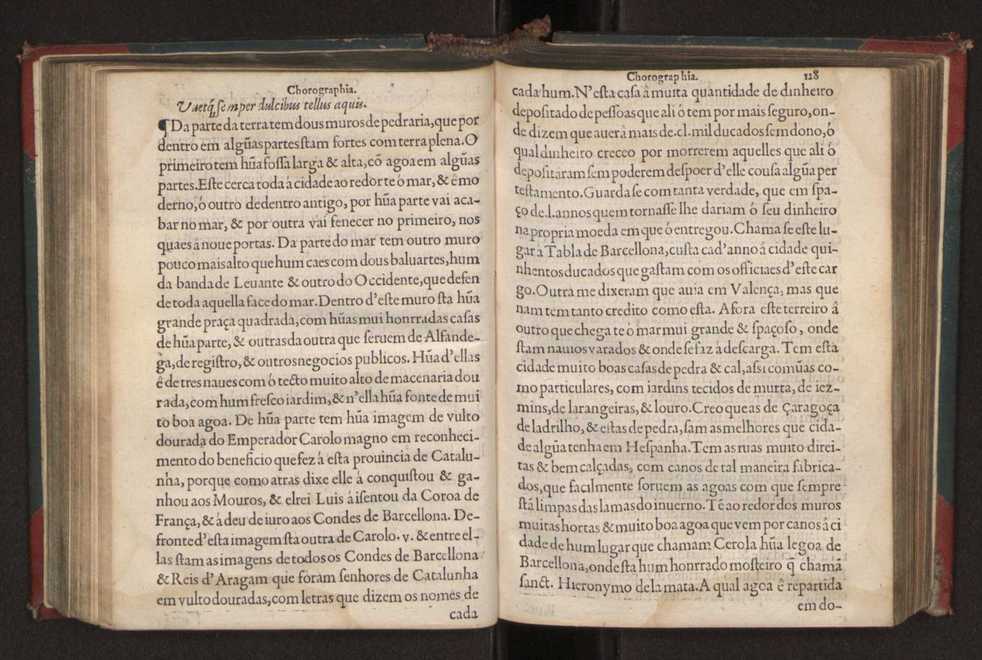 Chorographia.
Vaetq̃ semper dulcibus tellus aquis.
¶Da parte da terra tem dous muros de pedraria, que por
dentro em algũas partes stam fortes com terra plena. O
primeiro tem hũa fossa larga & alta, cõ agoa em algũas
partes. Este cerca toda à cidade ao redor te ô mar, & ê mo
derno, ó outro de dentro antigo, por hũa parte vai aca-
bar no mar, & por outra vai fenecer no primeiro, nos
quaes â noue portas. Da parte do mar tem outro muro
pouco mais alto que hum caes com dous baluartes, hum
da banda de Leuante & outro do Occidente, que defen
de toda aquella face do mar. Dentro d'este muro sta hũa
grande praça quadrada, com hũas mui honrradas casas
de hũa parte, & outras da outra que seruem de Alfande-
ga, de registro, & outros negocios publicos. Hũa d'ellas
ê de tres naues com ó tecto muito alto de macenaria dou
rada, com hum fresco iardim, & n'ella hũa fonte de mui
to boa agoa. De hũa parte tem hũa imagem de vulto
dourada do Emperador Carolo magno em reconheci-
mento do beneficio que fez à esta prouincia de Catalu-
nha, porque como atras dixe elle à conquistou & ga-
nhou aos Mouros, & elrei Luis à isentou da Coroa de
França, & à deu de iuro aos Condes de Barcellona. De-
fronte d'esta imagem sta outra de Carolo. v. & entre el-
las stam as imagens de todos os Condes de Barcellona
& Reis d'Aragam que foram senhores de Catalunha
em vulto douradas, com letras que dizem os nomes de
cada
Chorographia. 128
cada hum. N'esta casa â muita quantidade de dinheiro
depositado de pessoas que ali ó tem por mais seguro, on-
de dizem que auerà mais de .cl. mil ducados sem dono, ó
qual dinheiro creceo por morrerem aquelles que ali ó
depositaram sem poderem despoer d'elle cousa algũa per
testamento. Guarda se com tanta verdade, que em spa-
ço de .l. annos quem tornasse lhe dariam ó seu dinheiro
na propria moeda em que ó entregou. Chama se este lu-
gar à Tabla de Barcellona, custa cad'anno á cidade qui-
nhentos ducados que gastam com os officiaes d'este car
go. Outra me dixeram que auia em Valença, mas que
nam tem tanto credito como esta. Afora este terreiro â
outro que chega te ó mar mui grande & spaçoso, onde
stam nauios varados & onde se faz à descarga. Tem esta
cidade muito boas casas de pedra & cal, assi comũas co-
mo particulares, com iardins tecidos de murta, de iez-
mins, de larangeiras, & louro. Creo que as de Çaragoça
de ladrilho, & estas de pedra, sam as melhores que cida-
de algũa tenha em Hespanha. Tem as ruas muito direi-
tas & bem calçadas, com canos de tal maneira fabrica-
dos, que facilmente soruem as agoas com que sempre
stã limpas das lamas do inuerno. Tê ao redor dos muros
muitas hortas & muito boa agoa que vem por canos à ci
dade de hum lugar que chamam Cerola hũa legoa de
Barcellona, onde sta hum honrrado mosteiro q̃ chamã
sanct. Hieronymo de la mata. A qual agoa ê repartida
em do-